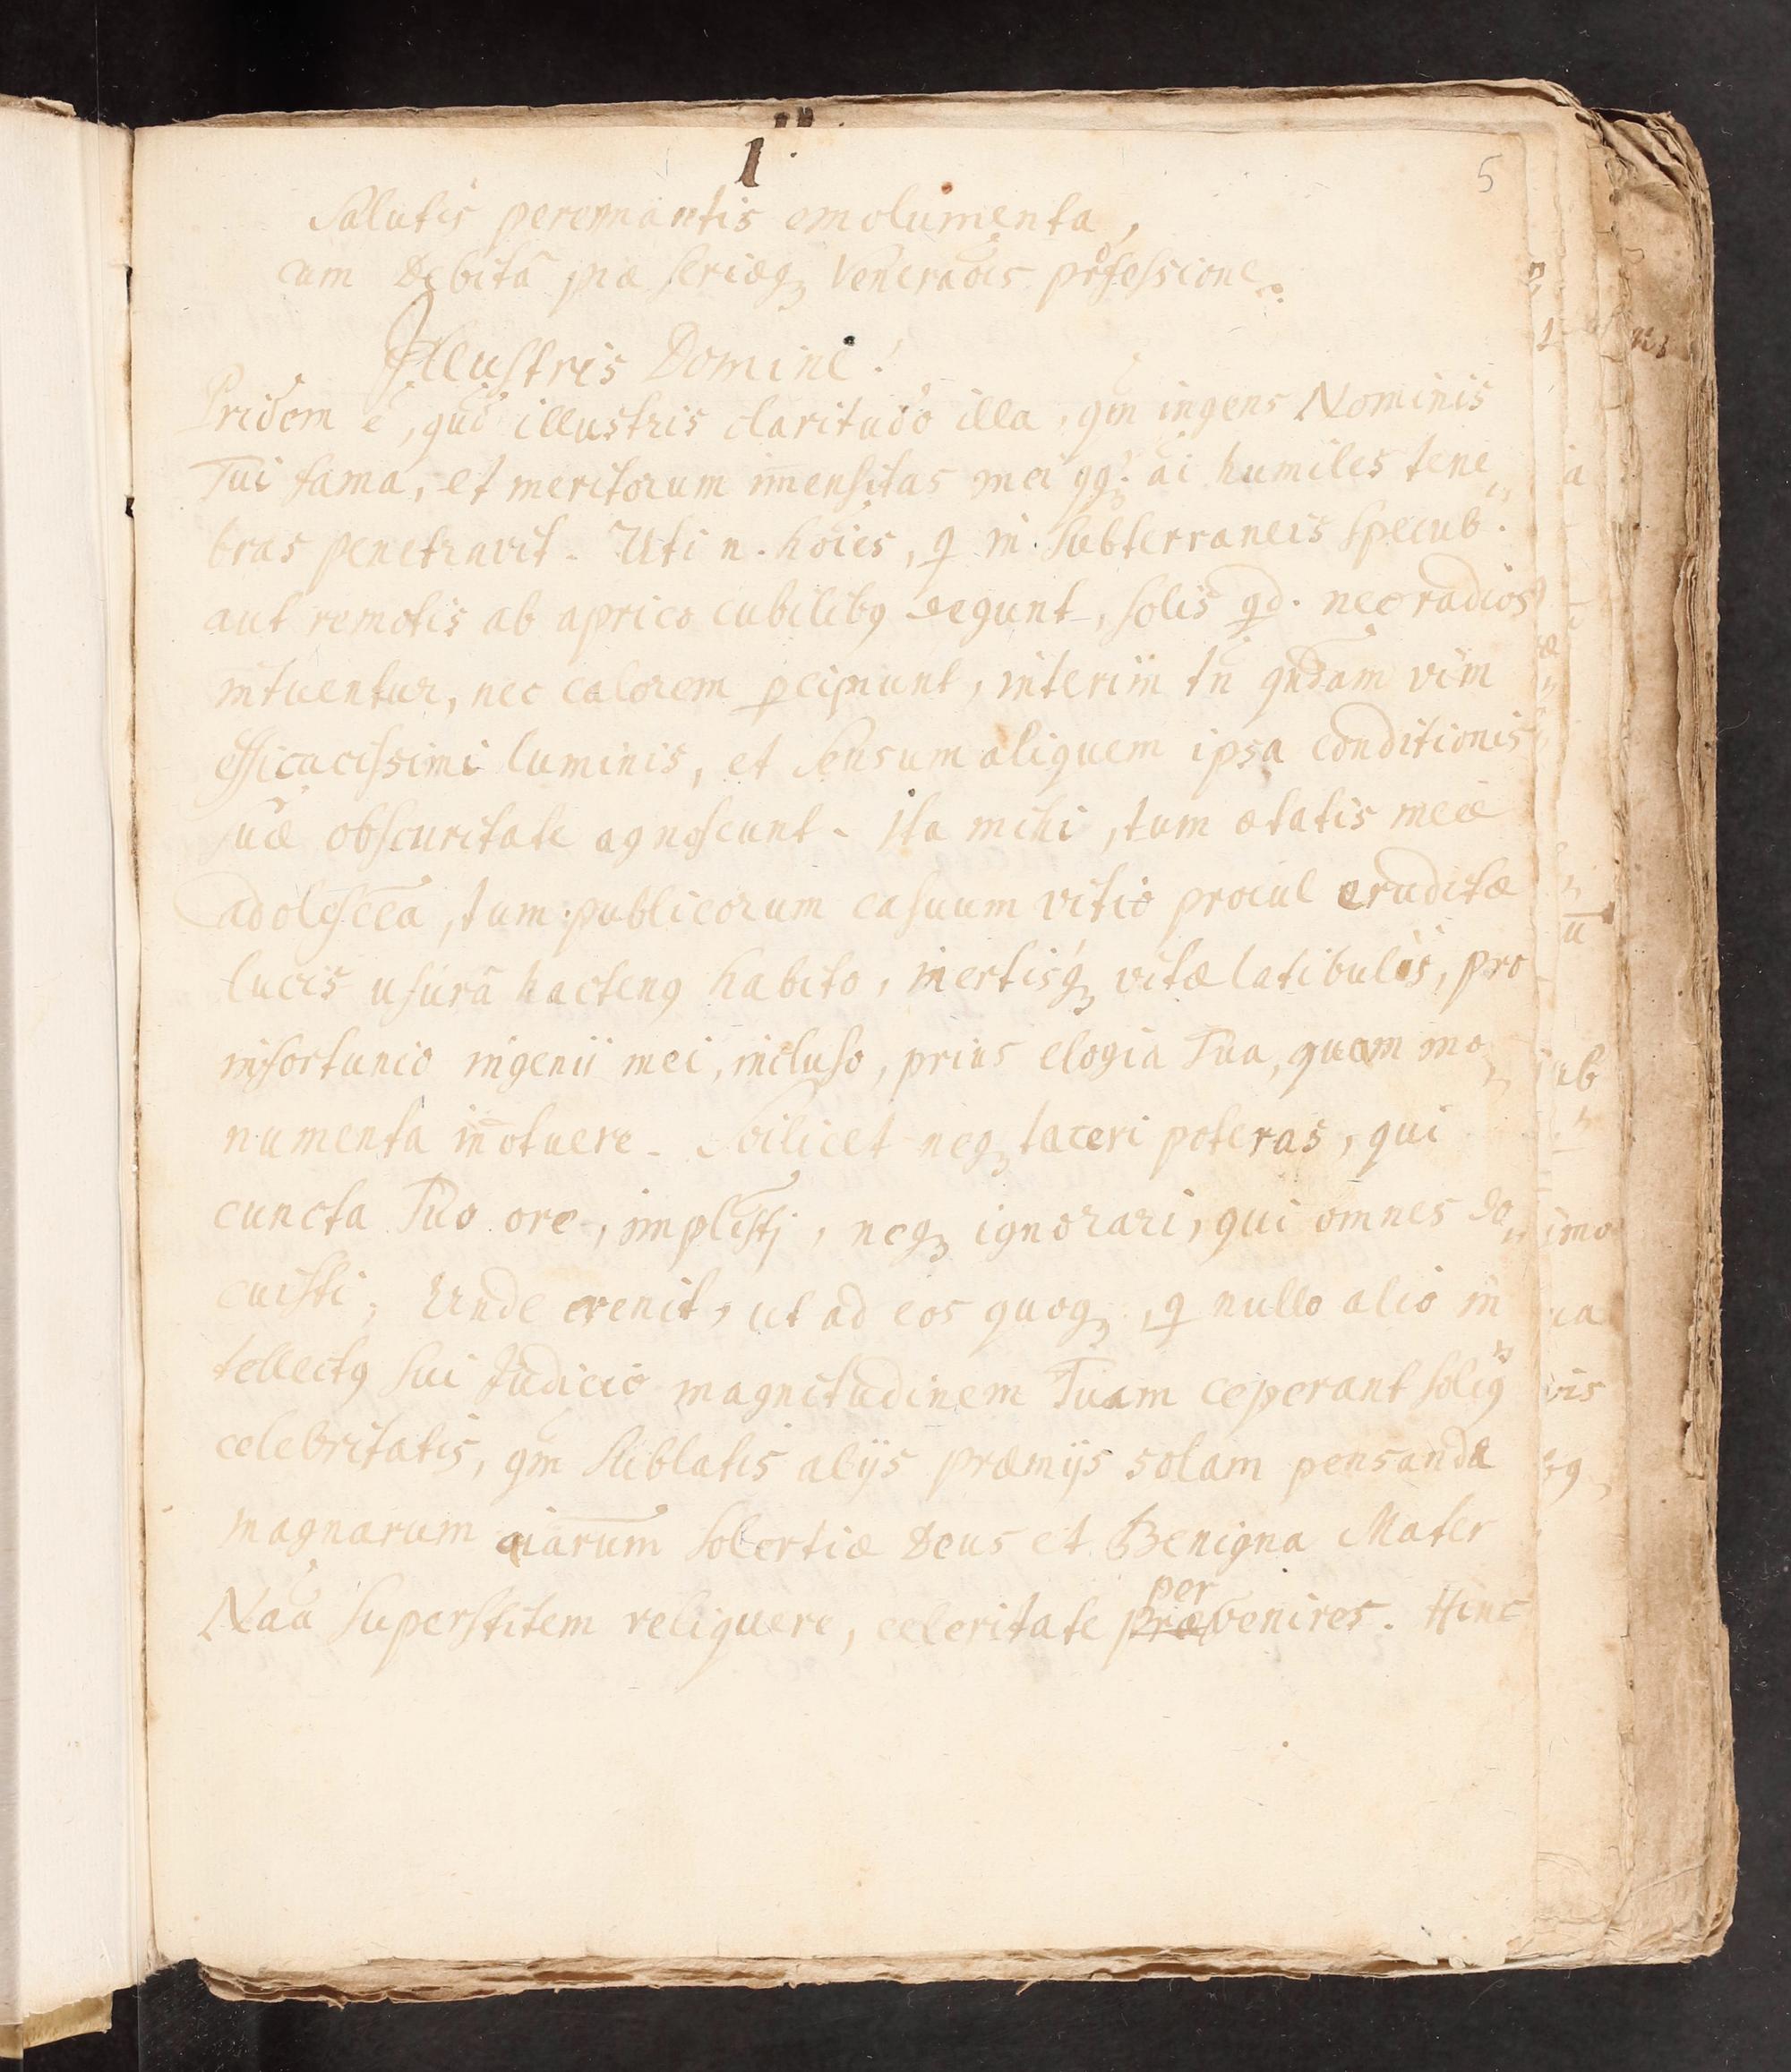 1.
5
Salutis perennantis emolumenta,
cum Debitâ piæ seriæq; Veneraõis professione.
Illustris Domine!
Pridem ē, quod illustris claritudo illa, qm̃ ingens Nominis
Tui fama, et meritorum im̄ensitas mei qq; aĩ humiles tene„
bras penetravit. Uti n. hoĩes, q in subterraneis specub.
aut remotis ab aprico cubilibꝰ degunt, solis qd. nec radios
intuentur, nec calorem pcipiunt, interim tñ qndam vim
efficacissimi luminis, et sensum aliquem ipsa conditionis
suæ obscuritate agnoscunt. Ita mihi, tum ætatis meæ
adolescẽa, tum publicorum casuum vitio procul eruditæ
lucis usurâ hactenꝰ habito, inertisq; vitæ latibulis, pro
infortunio ingenii mei, incluso, prius elogia Tua, quam mo„
numenta in̄otuere. Scilicet neq; taceri poteras, qui
cuncta Tuo ore, implesti, neq; ignorari, qui omnes do„
cuisti; Unde evenit, ut ad eos quoq;, q nullo alio in„
tellectꝰ sui Judicio magnitudinem Tuam ceperant soliꝰ
celebritatis, qm̃ sublatis alijs præmijs solam pensandæ
magnarum aiarum solertiæ Deus et Benigna Mater
Naa superstitem reliquere, celeritate præ per venires. Hinc